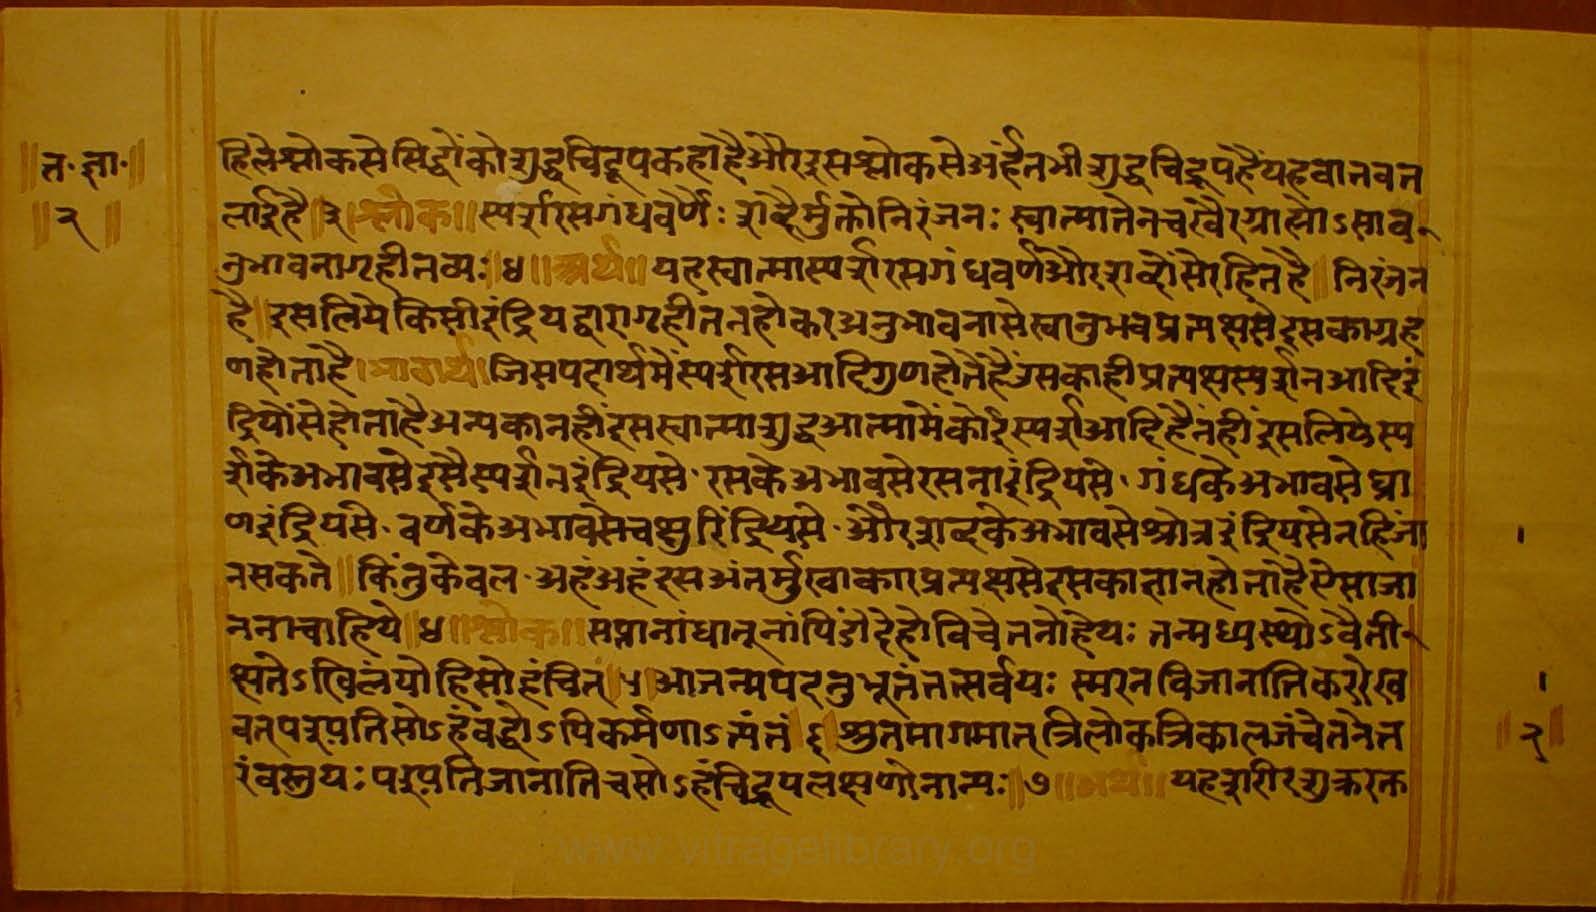 ॥त.ज्ञा.॥
॥२॥
हिलेश्लोकसेसिद्धोंकोशुद्धचिद्रूपकहाहैऔरइसश्लोकसेअर्हंतभीशुद्धचिद्रूपहैंयहवातवत
लाईहै॥३॥श्लोक॥स्पर्शरसगंधवर्णैःशब्दैर्मुक्तोनिरंजनःस्वात्मातेनचखैरग्राह्योऽसाव
नुभावनागृहीतव्यः॥४॥अर्थ॥यहस्वात्मास्पर्शरसगंधवर्णऔरशब्दोंसेरहितहै॥निरंजन
है॥इसलियेकिसीइंद्रियद्वारागृहीतनहोकरअनुभावनासेस्वानुभवप्रत्यक्षसेइसकाग्रह
णहोताहै।भावार्थ।जिसपदार्थमैंस्पर्शरसआदिगुणहोतैहैंउसकाहीप्रत्यक्षस्पर्शनआदिइं
द्रियोंसेहोताहैअन्यकानहींइसस्वात्माशुद्धआत्मामेंकोईस्पर्शआदिहैनहींइसलियेस्प
र्शकेअभावसेइसैस्पर्शनइंद्रियसे.रसकेअभावसेरसनाइंद्रियसे.गंधकेअभावसेघ्रा
णइंद्रियसे.वर्णकेअभावसेचक्षुरिंद्रियसे.औरशब्दकेअभावसेश्रोत्रइंद्रियसेनहिंजा
नसकते॥किंतुकेवल.अहंअहंइसअंतर्मुखाकारप्रत्यक्षसेइसकाज्ञानहोताहैऐसाजा
ननाचाहिये॥४॥श्लोक॥सप्तानांधातूनांपिंडोदेहोविचेतनोहेयःतन्मध्यस्थोऽवैती
क्ष्यतेऽखिलंयोहिसोहंचित्॥५॥आजन्मयदनुभूतंतत्सर्वंयःस्मरनविजानातिकररेख
वत्पश्यतिसोऽहंबद्धोऽपिकर्मणाऽत्यंतं॥६॥श्रुतमागमात्त्रिलोकत्रिकालजंचेतनेत
रंवस्तुयःपश्यतिजानातिचसोऽहंचिद्रूपलक्षणोनान्यः॥७॥अर्थ॥यहशरीरशुक्ररक्त
॥२॥
www.vitragelibrary.org